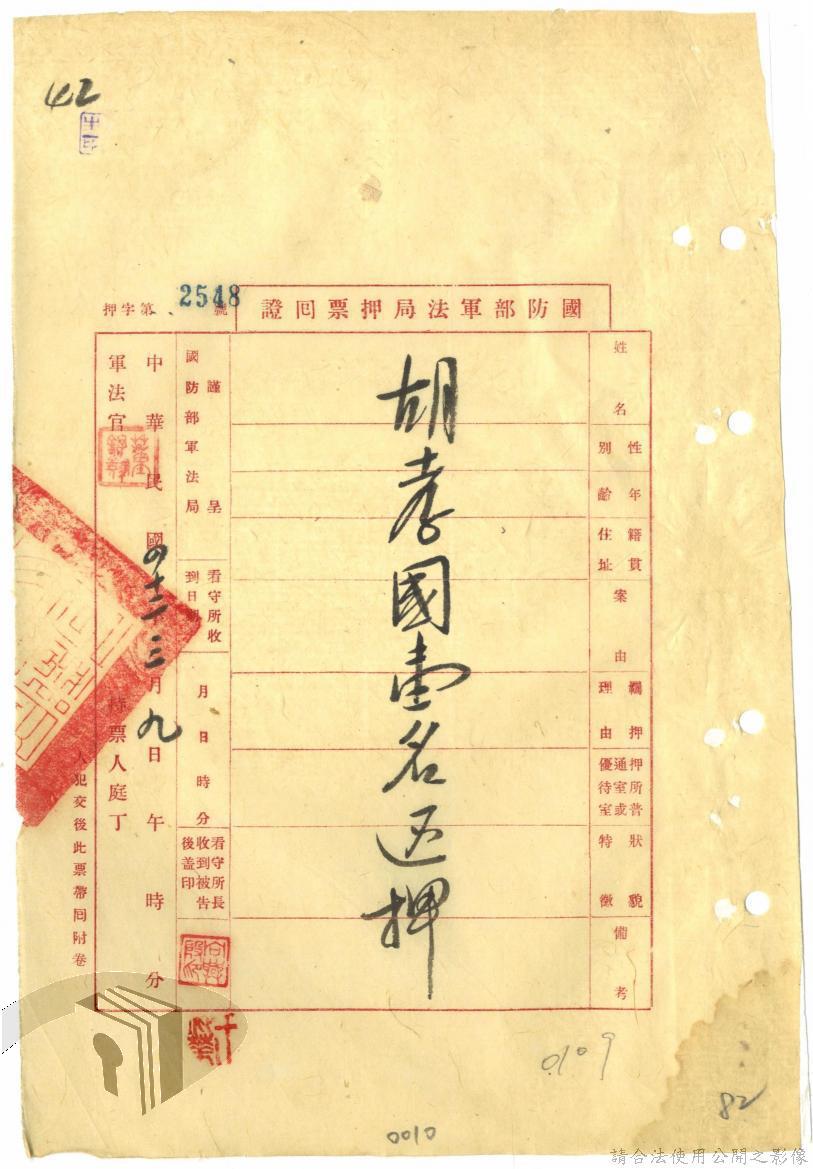 42
國防部軍法局押票回證
押字第 2548 號
姓名
性別
年齡
籍貫
住址
案由
羈押理由
押所普通室或優待室
狀貌特徵
備考
胡孝國壹名還押
謹呈
國防部軍法局
看守所收到日期
月日時分
看守所長收到被告後蓋印
中華民國四十二年三月九日午時分
軍法官
持票人庭丁
人犯交後此票帶回附卷
0109
82
0010
請合法使用公開之影像